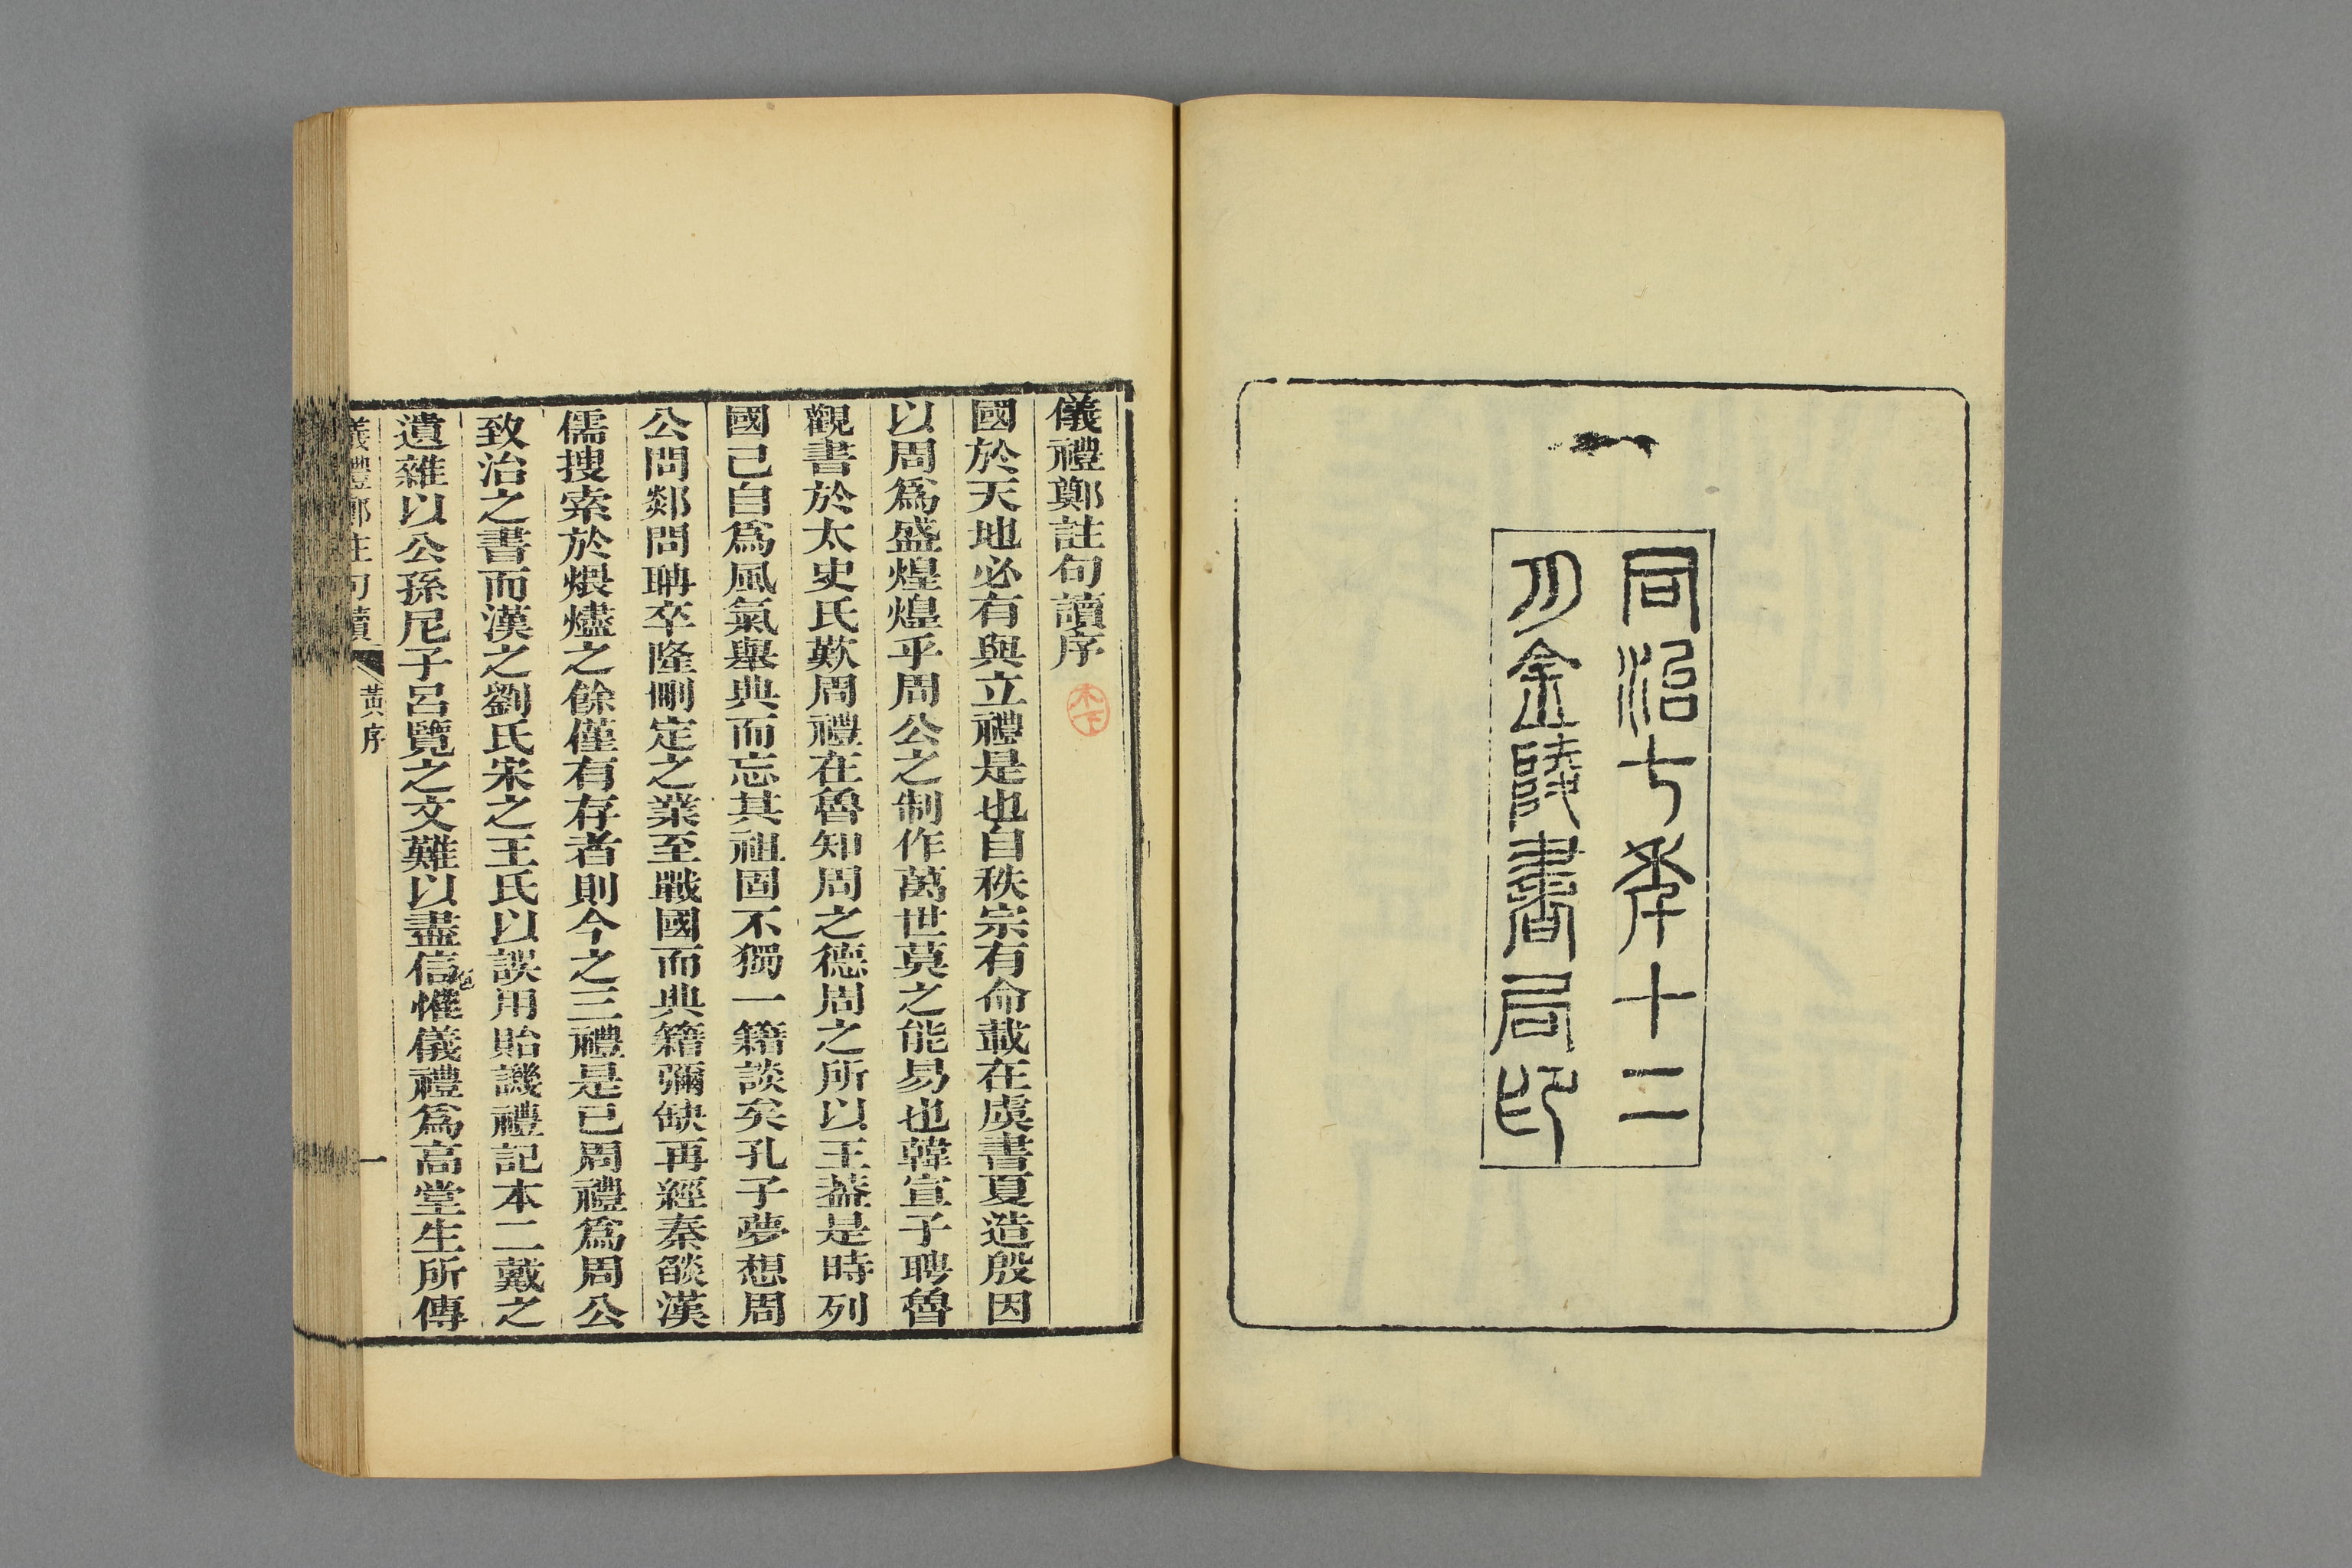 同治七年十二
月金陵書局印
儀禮鄭註句讀序
木下
國於天地必有與立禮是也自秩宗有命載在虞書夏造殷因
以周爲盛煌煌乎周公之制作萬世莫之能易也韓宣子聘魯
觀書於太史氏歎周禮在魯知周之德周之所以王蓋是時列
國已自爲風氣舉典而忘其祖固不獨一籍談矣孔子夢想周
公問郯問聃卒隆刪定之業至戰國而典籍彌缺再經秦燄漢
儒搜索於煨燼之餘僅有存者則今之三禮是已周禮爲周公
致治之書而漢之劉氏宋之王氏以誤用貽譏禮記本二戴之
遺雜以公孫尼子呂覽之文難以盡信惟儀禮爲高堂生所傳
儀禮鄭註句讀
黃序
一